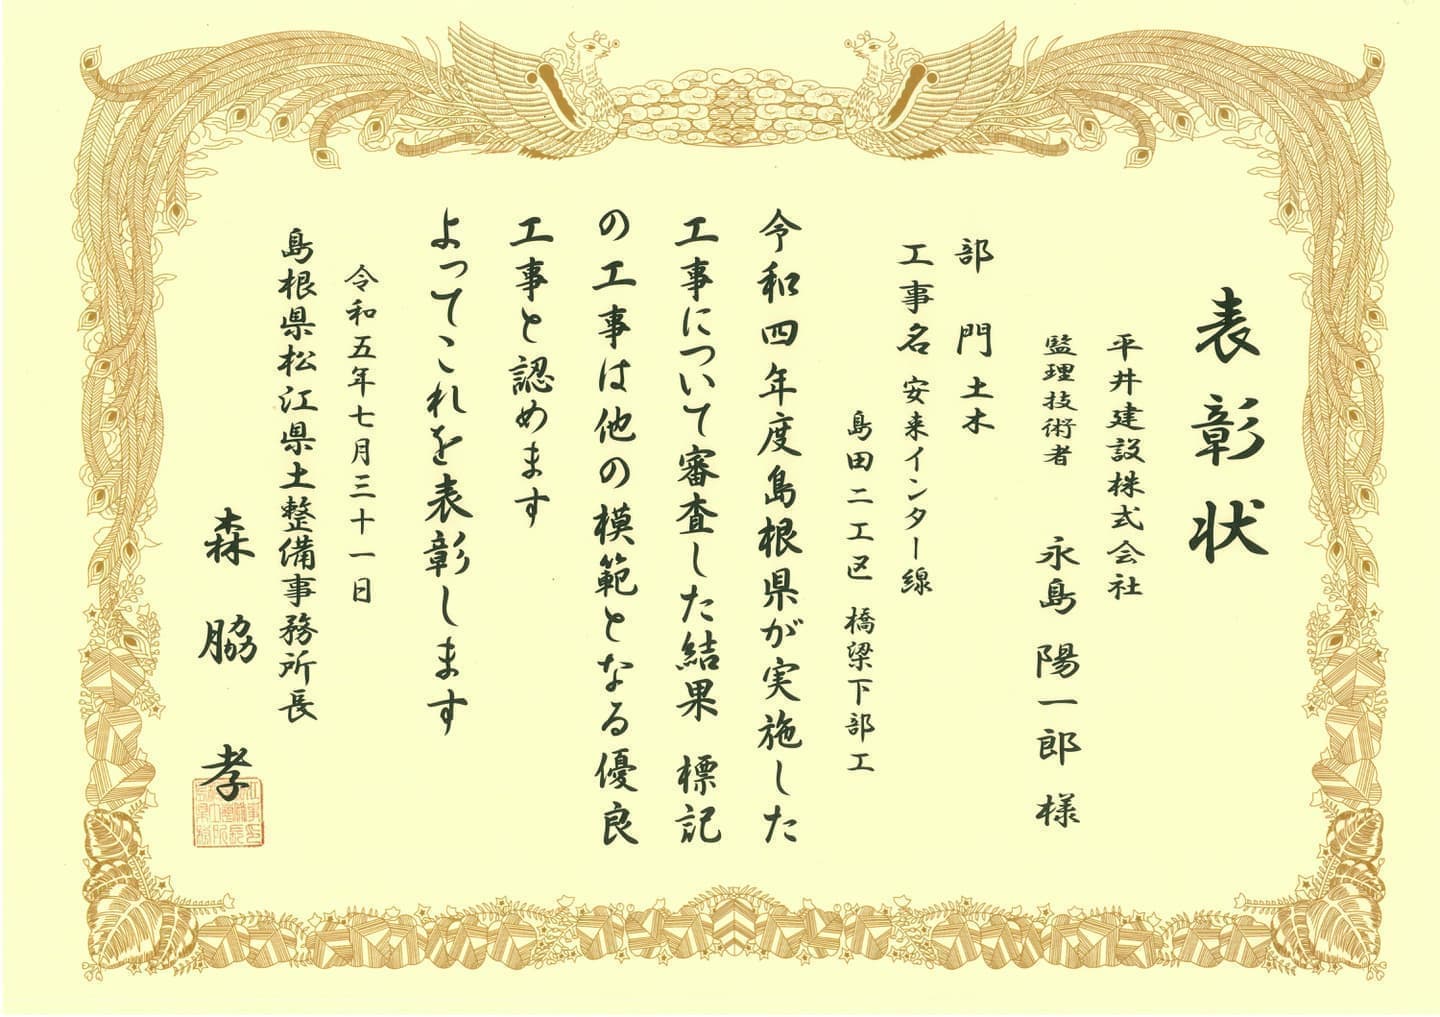 表彰状
平井建設株式会社
監理技術者 永島 陽一郎 様
部 門 土木
工事名 安来インター線
島田二工区 橋梁下部工
令和四年度島根県が実施した
工事について審査した結果 標記
の工事は他の模範となる優良
工事と認めます
よってこれを表彰します
令和五年七月三十一日
島根県松江県土整備事務所長
森 脇 孝